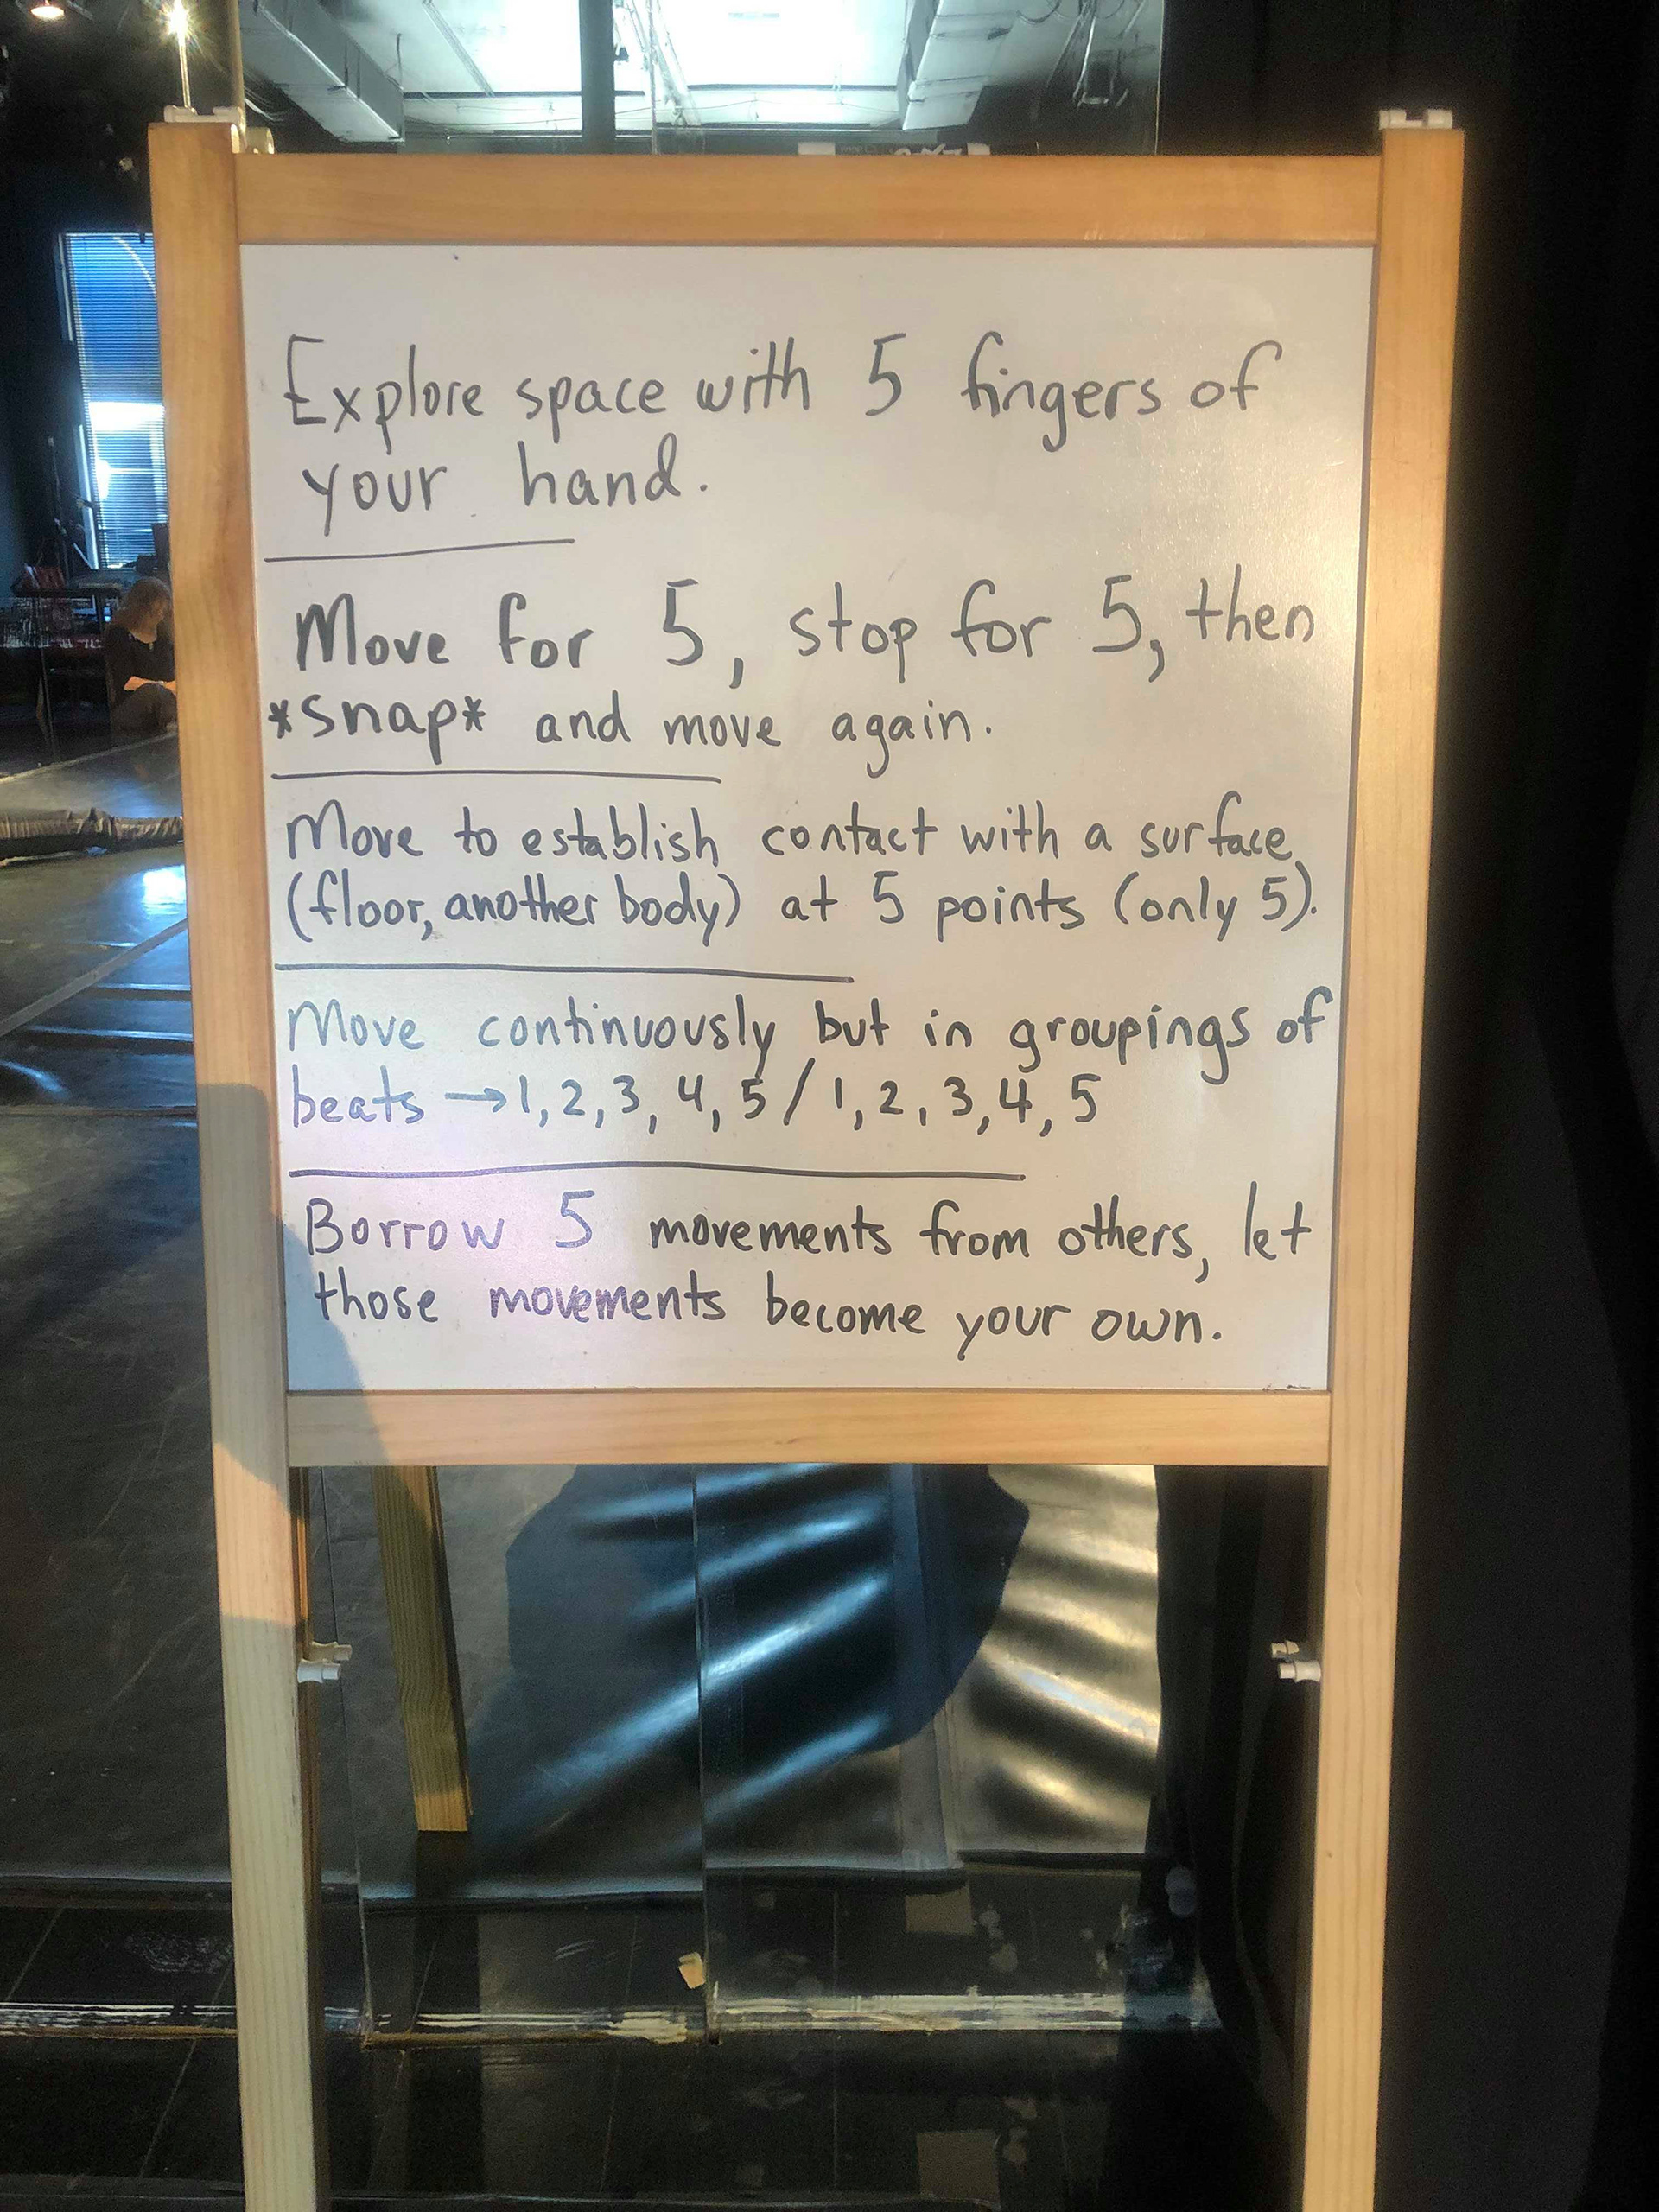 Explore space with 5 fingers of
your hand.
Move for 5, stop for 5, then
*snap* and move again.
Move to establish contact with a surface
(floor, another body) at 5 points (only 5).
Move continuously but in groupings of
beats → 1, 2, 3, 4, 5 / 1, 2, 3, 4, 5
Borrow 5 movements from others, let
those movements become your own.